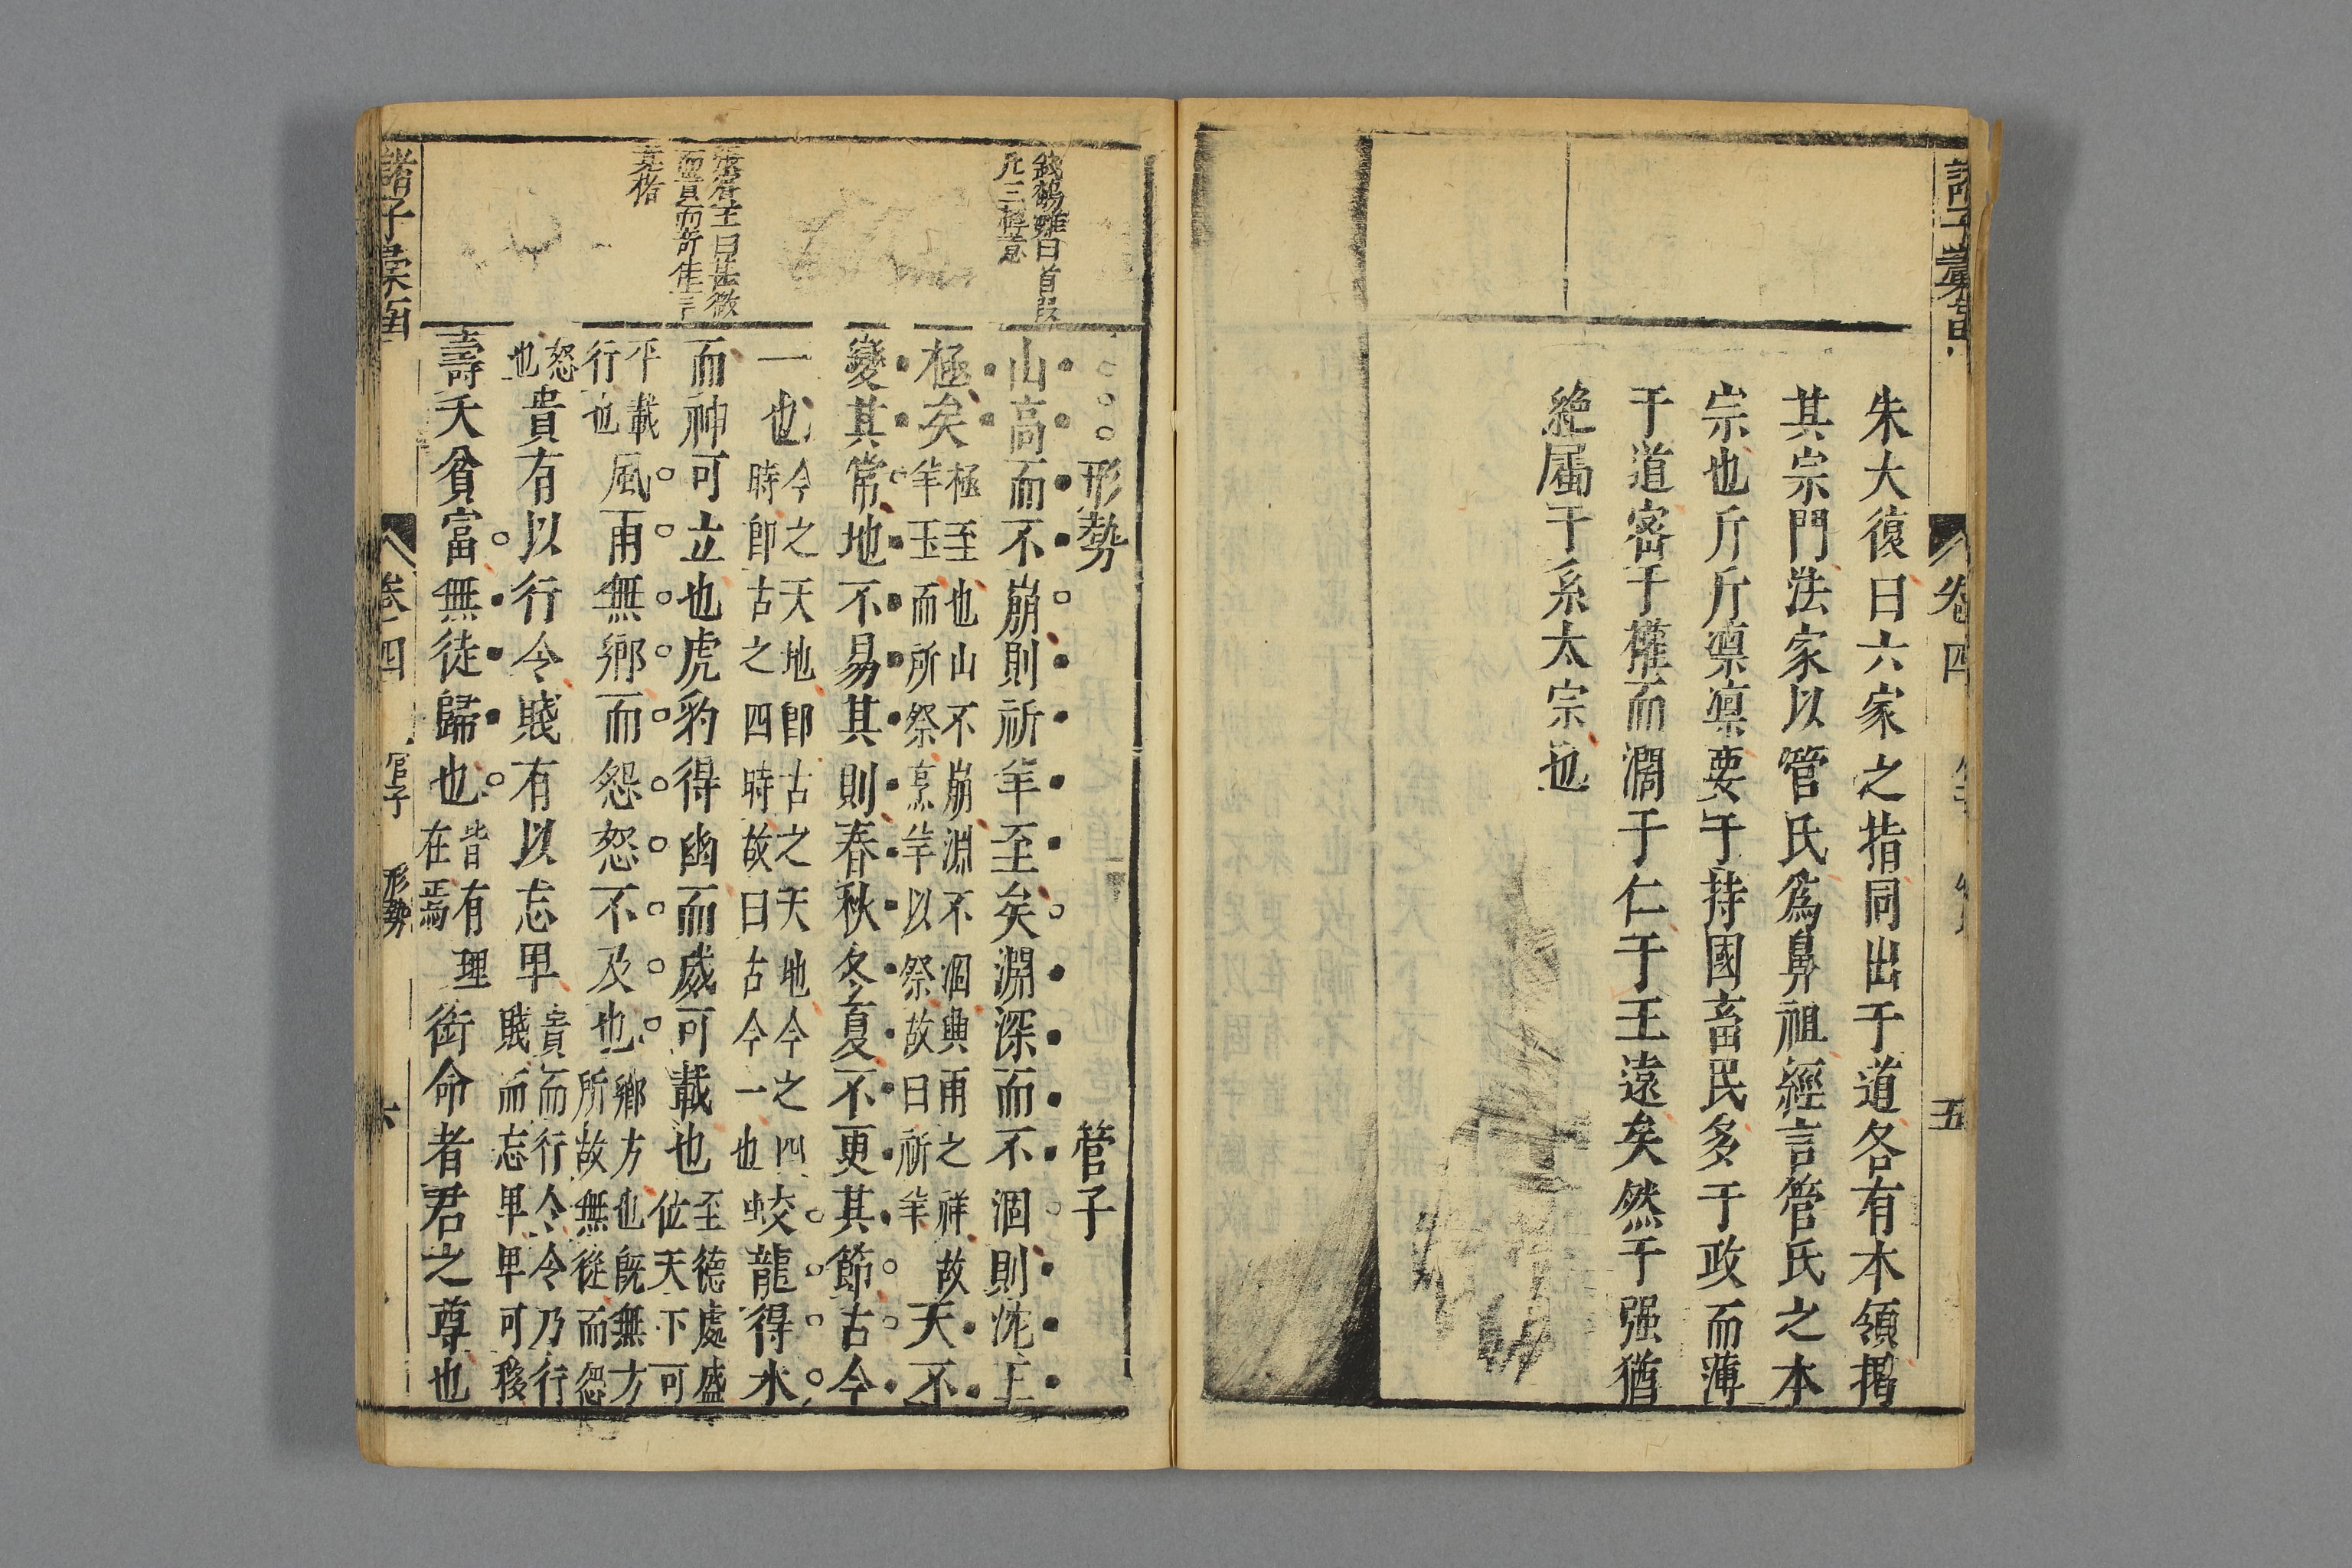 朱大復曰六家之指同出于道各有本領揭
其宗門法家以管氏為鼻祖經言管氏之本
宗也斤斤凛凛要于持國畜民多于政而薄
于道密于權而濶于仁于王遠矣然于强猶
絶属于系太宗也
卷四
五
形勢 管子
山高而不崩則祈羊至矣淵深而不涸則沈玉
極矣極至也山不崩淵不涸興雨之祥故羊玉而所祭烹羊以祭故曰祈羊天不
變其常地不易其則春秋冬夏不更其節古今
一也今之天地即古之天地今之四時即古之四時故曰古今一也蛟龍得水
而神可立也虎豹得幽而威可載也至德處盛位天下可
平載行也風雨無鄉而怨怒不及也鄉方也既無方所故無從而怨
怒也貴有以行令賤有以忘卑貴而行令令乃行賤而忘卑卑可移
壽夭貧富無徒歸也皆有理在焉銜命者君之尊也
曰首段
凡三得意
諸子彙函
卷四
管子
形勢
六